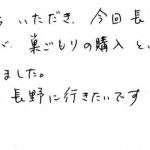 いただき、今回長
巣ごもりの購入と
ました。
長野に行きたいです